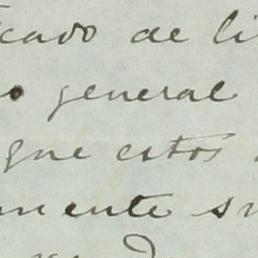 cado de li
o general
que estos
mente su